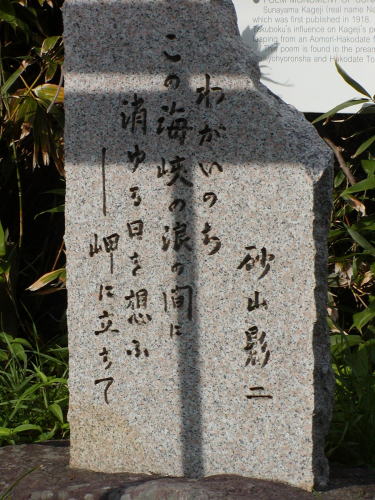 POEM MONUMENT OF
Sunayama Kageji (real name Na
which was first published in 1918.
kuboku's influence on Kageji's p
ping from an Aomori-Hakodate f
poem is found in the pream
yohyoronsha and Hakodate To
砂山影二
わがいのち
この海峡の浪の間に
消ゆる日を想ふ
―岬に立ちて